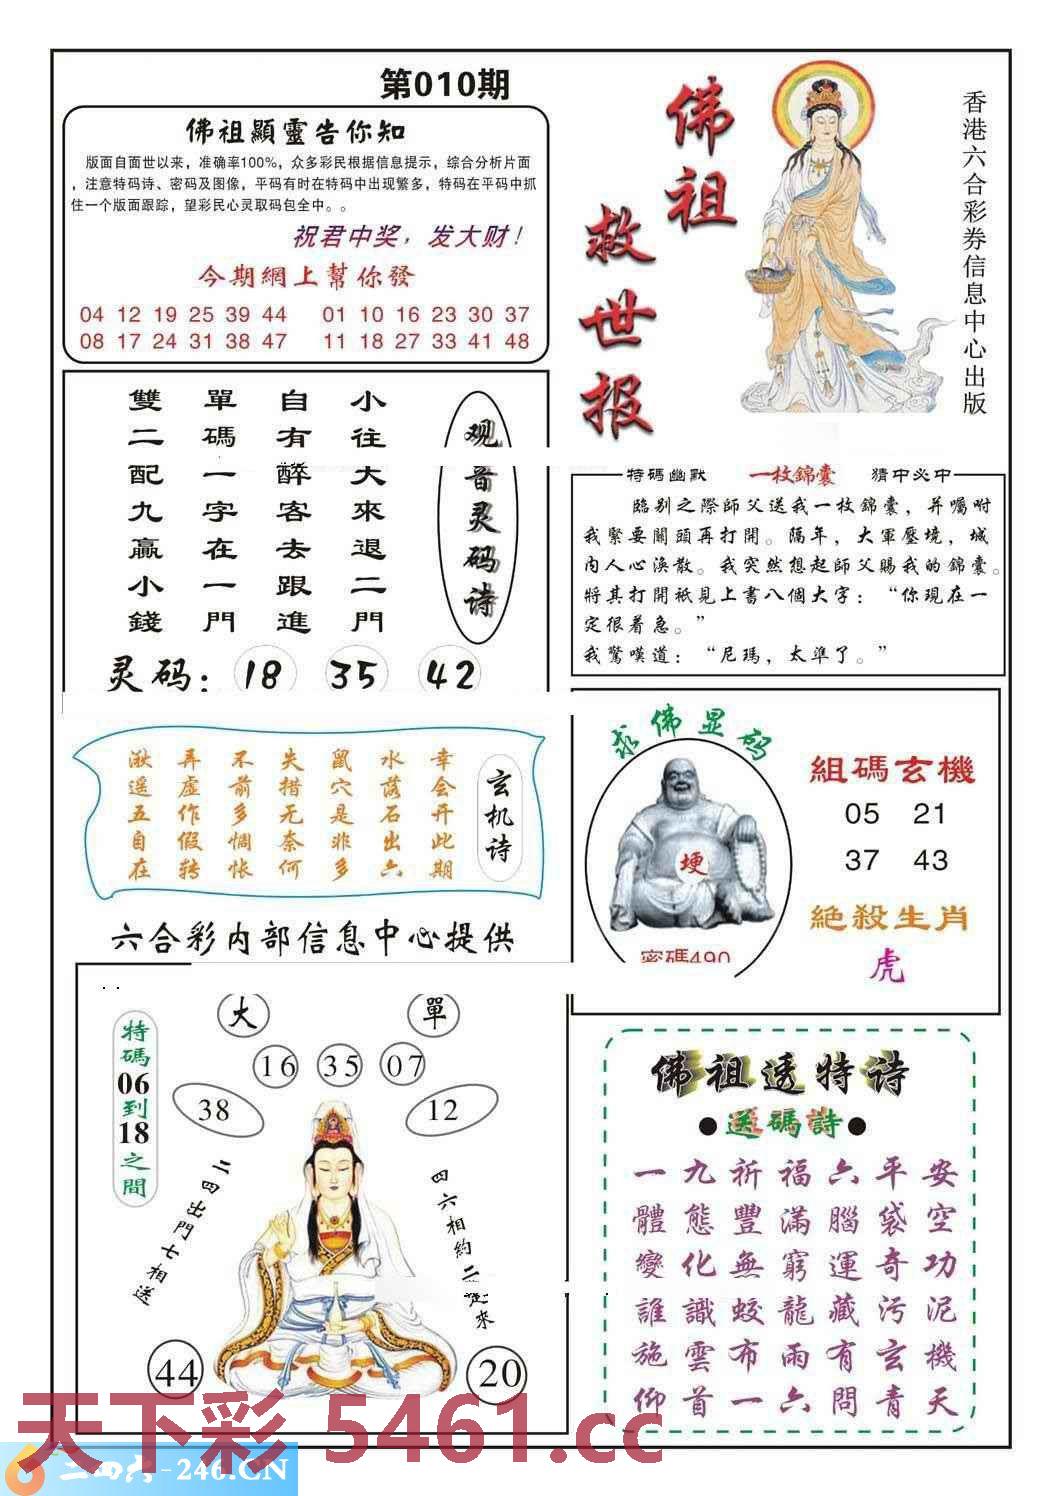 第010期
佛祖顯靈告你知
版面自面世以来，准确率100%，众多彩民根据信息提示，综合分析片面
，注意特码诗、密码及图像，平码有时在特码中出现繁多，特码在平码中抓
住一个版面跟踪，望彩民心灵取码包全中。。
祝君中奖，发大财！
今期網上幫你發
04 12 19 25 39 44 01 10 16 23 30 37
08 17 24 31 38 47 11 18 27 33 41 48
佛祖
救世报
香港六合彩券信息中心出版
观音灵码诗
小往大來退二門
自有醉客去跟進
單碼一字在一門
雙二配九贏小錢
灵码：18 35 42
特碼幽默 一枚錦囊 猜中必中
臨别之際師父送我一枚錦囊，并囑咐
我緊要關頭再打開。隔年，大軍壓境，城
内人心渙散。我突然想起師父賜我的錦囊。
將其打開衹見上書八個大字：“你現在一
定很着急。”
我驚嘆道：“尼瑪，太準了。”
玄机诗
幸会开此期
水落石出六
鼠穴是非多
失措无奈何
不前多惆怅
弄虚作假转
湫遥五自在
六合彩内部信息中心提供
求佛显码
埂
密碼490
組碼玄機
05 21
37 43
絶殺生肖
虎
特碼06到18之間
大 單
16 35 07
38 12
二四出門七相送
四六相約二起來
44 20
佛祖透特诗
●送碼詩●
一九祈福六平安
體態豐滿腦袋空
變化無窮運奇功
誰識蛟龍藏污泥
施雲布雨有玄機
仰首一六問青天
天下彩 5461.cc
二四六-246.CN